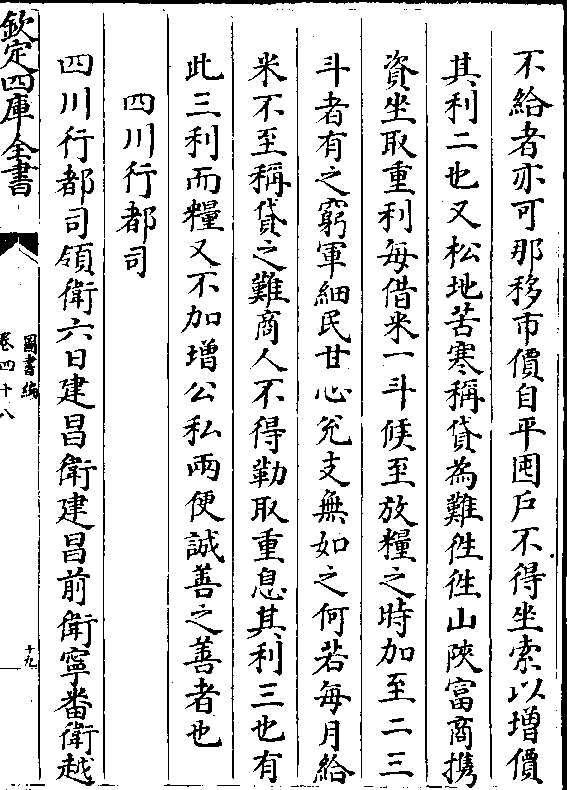 不給者亦可那移市價自平囤戶不得坐索以增價
其利二也又松地苦寒稱貸為難徃徃山陜富商携
資坐取重利每借米一斗候至放糧之時加至二三
斗者有之窮軍細民甘心兊支無如之何若每月給
米不至稱貸之難商人不得勒取重息其利三也有
此三利而糧又不加增公私兩便誠善之善者也
四川行都司
四川行都司領衛六曰建昌衛建昌前衛寧番衛越
欽定四庫全書
圖書編
卷四十八
十九